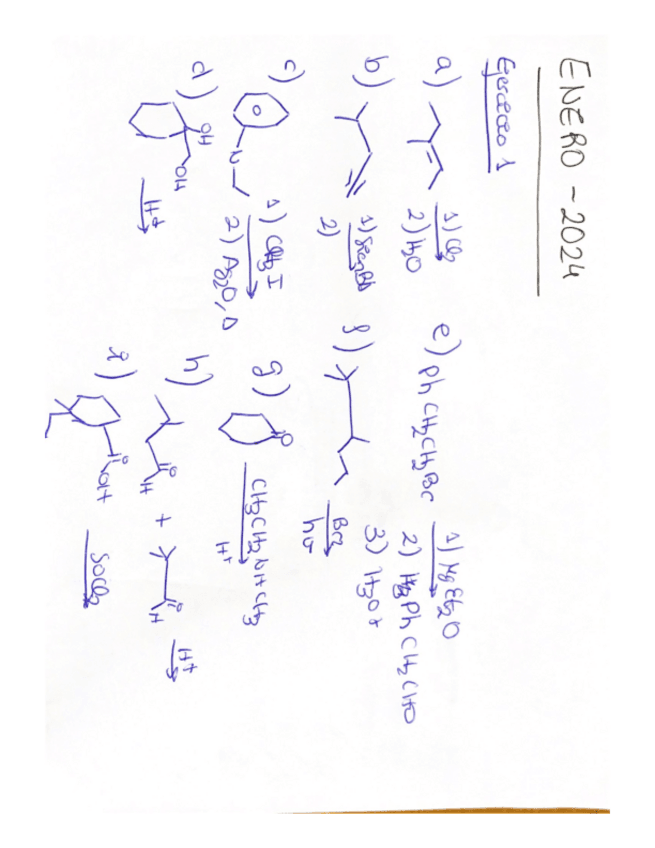 ENERO - 2024
Ejercicio 1
a) 1) Cl2
2) H2O
b)
2)
c) N 1) CH3I
2) Ag2O, Δ
d) OH
OH
H+
e) PhCH2CH2Br 1) Mg Et2O
2) PhCH2CHO
3) H3O+
f) Br2
hν
g) O CH3CH2NHCH3
H+
h) O
H + O
H H+
i) O
OH SOCl2